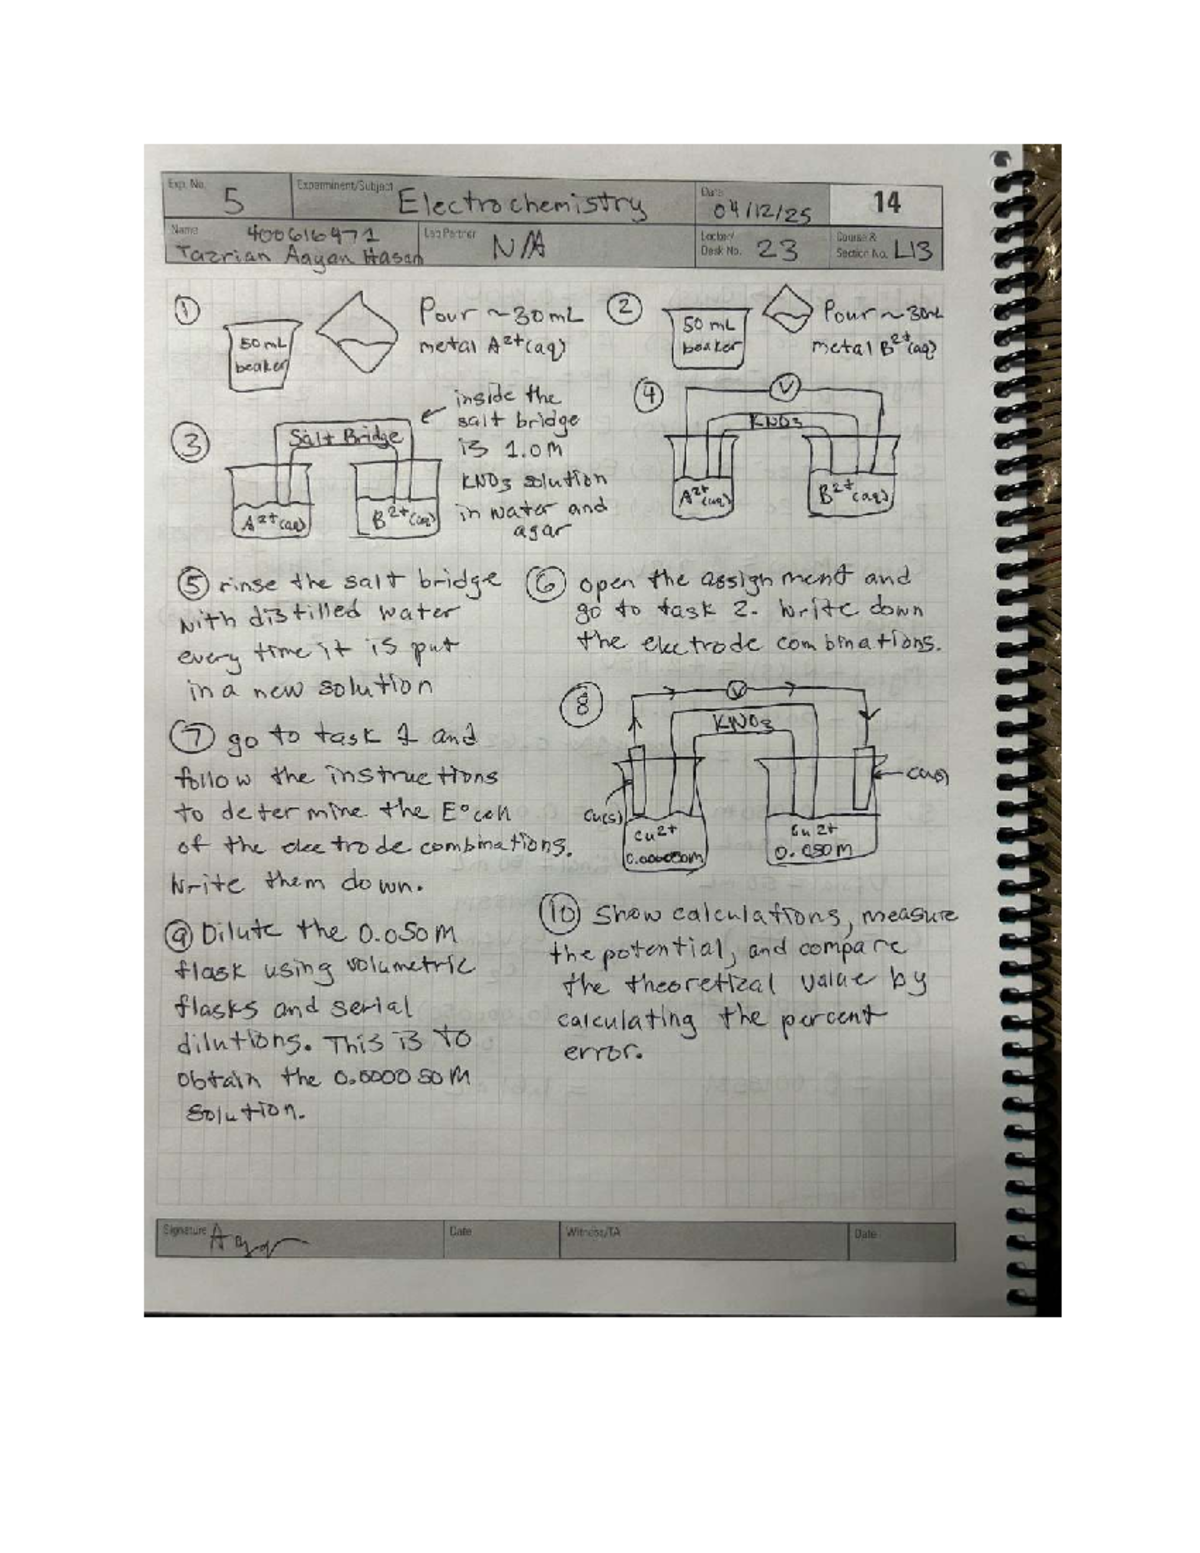 Exp. No.
5
Experiment/Subject
Electrochemistry
Date
04/12/25
14
Name
400616971
Tazrian Aayan Hasan
Lab Partner
N/A
Locker/
Desk No.
23
Course &
Section No.
L13
①
50 mL
beaker
Pour ~30mL
metal A2+(aq)
②
50 mL
beaker
Pour ~30mL
metal B2+(aq)
③
Salt Bridge
A2+(aq)
B2+(aq)
inside the
salt bridge
is 1.0M
KNO3 solution
in water and
agar
④
V
KNO3
A2+(aq)
B2+(aq)
⑤ rinse the salt bridge
with distilled water
every time it is put
in a new solution
⑥ open the assignment and
go to task 2. Write down
the electrode combinations.
⑦ go to task 1 and
follow the instructions
to determine the E°cell
of the electrode combinations.
Write them down.
⑧
V
KNO3
Cu(s)
Cu(s)
Cu2+
0.000050M
Cu2+
0.050M
⑨ Dilute the 0.050M
flask using volumetric
flasks and serial
dilutions. This is to
obtain the 0.000050M
solution.
⑩ Show calculations, measure
the potential, and compare
the theoretical value by
calculating the percent
error.
Signature
Date
Witness/TA
Date